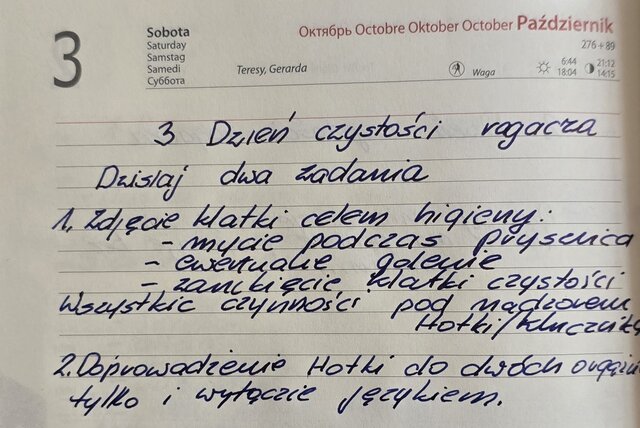 3
Sobota
Saturday
Samstag
Samedi
Суббота
Teresy, Gerarda
Октябрь Octobre Oktober October Październik
276÷89
Waga
6:44
18:04
21:12
14:15
3 Dzień czystości rogacza
Dzisiaj dwa zadania
1. Zdjęcie klatki celem higieny:
- mycie podczas prysznica
- ewentualne golenie
- zamknięcie klatki czystości
Wszystkie czynności pod nadzorem
Hotki/klucznika
2. Doprowadzenie Hotki do dwóch
tylko i wyłącznie językiem.